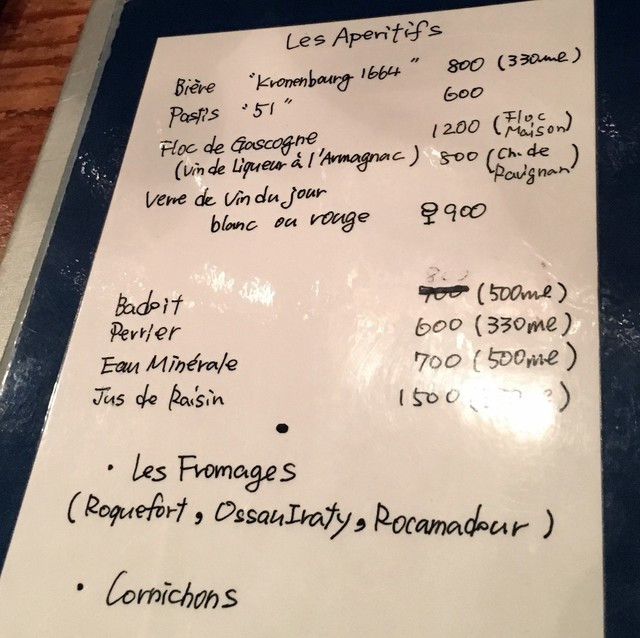 Les Aperitifs
Bière "Kronenbourg 1664" 800 (330ml)
Pastis "51" 600
Floc de Gascogne 1200 (Floc Maison)
(Vin de Liqueur à l'Armagnac) 800 (Ch. de Pavignan)
Verre de Vin du jour
blanc ou rouge 900
800
Badoit 700 (500ml)
Perrier 600 (330ml)
Eau Minérale 700 (500ml)
Jus de Raisin 1500
• Les Fromages
(Roquefort, OssauIraty, Rocamadour)
• Cornichons